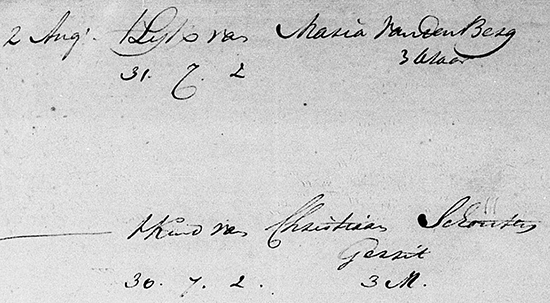 2 Aug. t Lyk van Maria van den Berg
3 klaar
31. 7. 2
t Kind van Christiaan Schouten
Gerrit
30. 7. 2. 3 M.